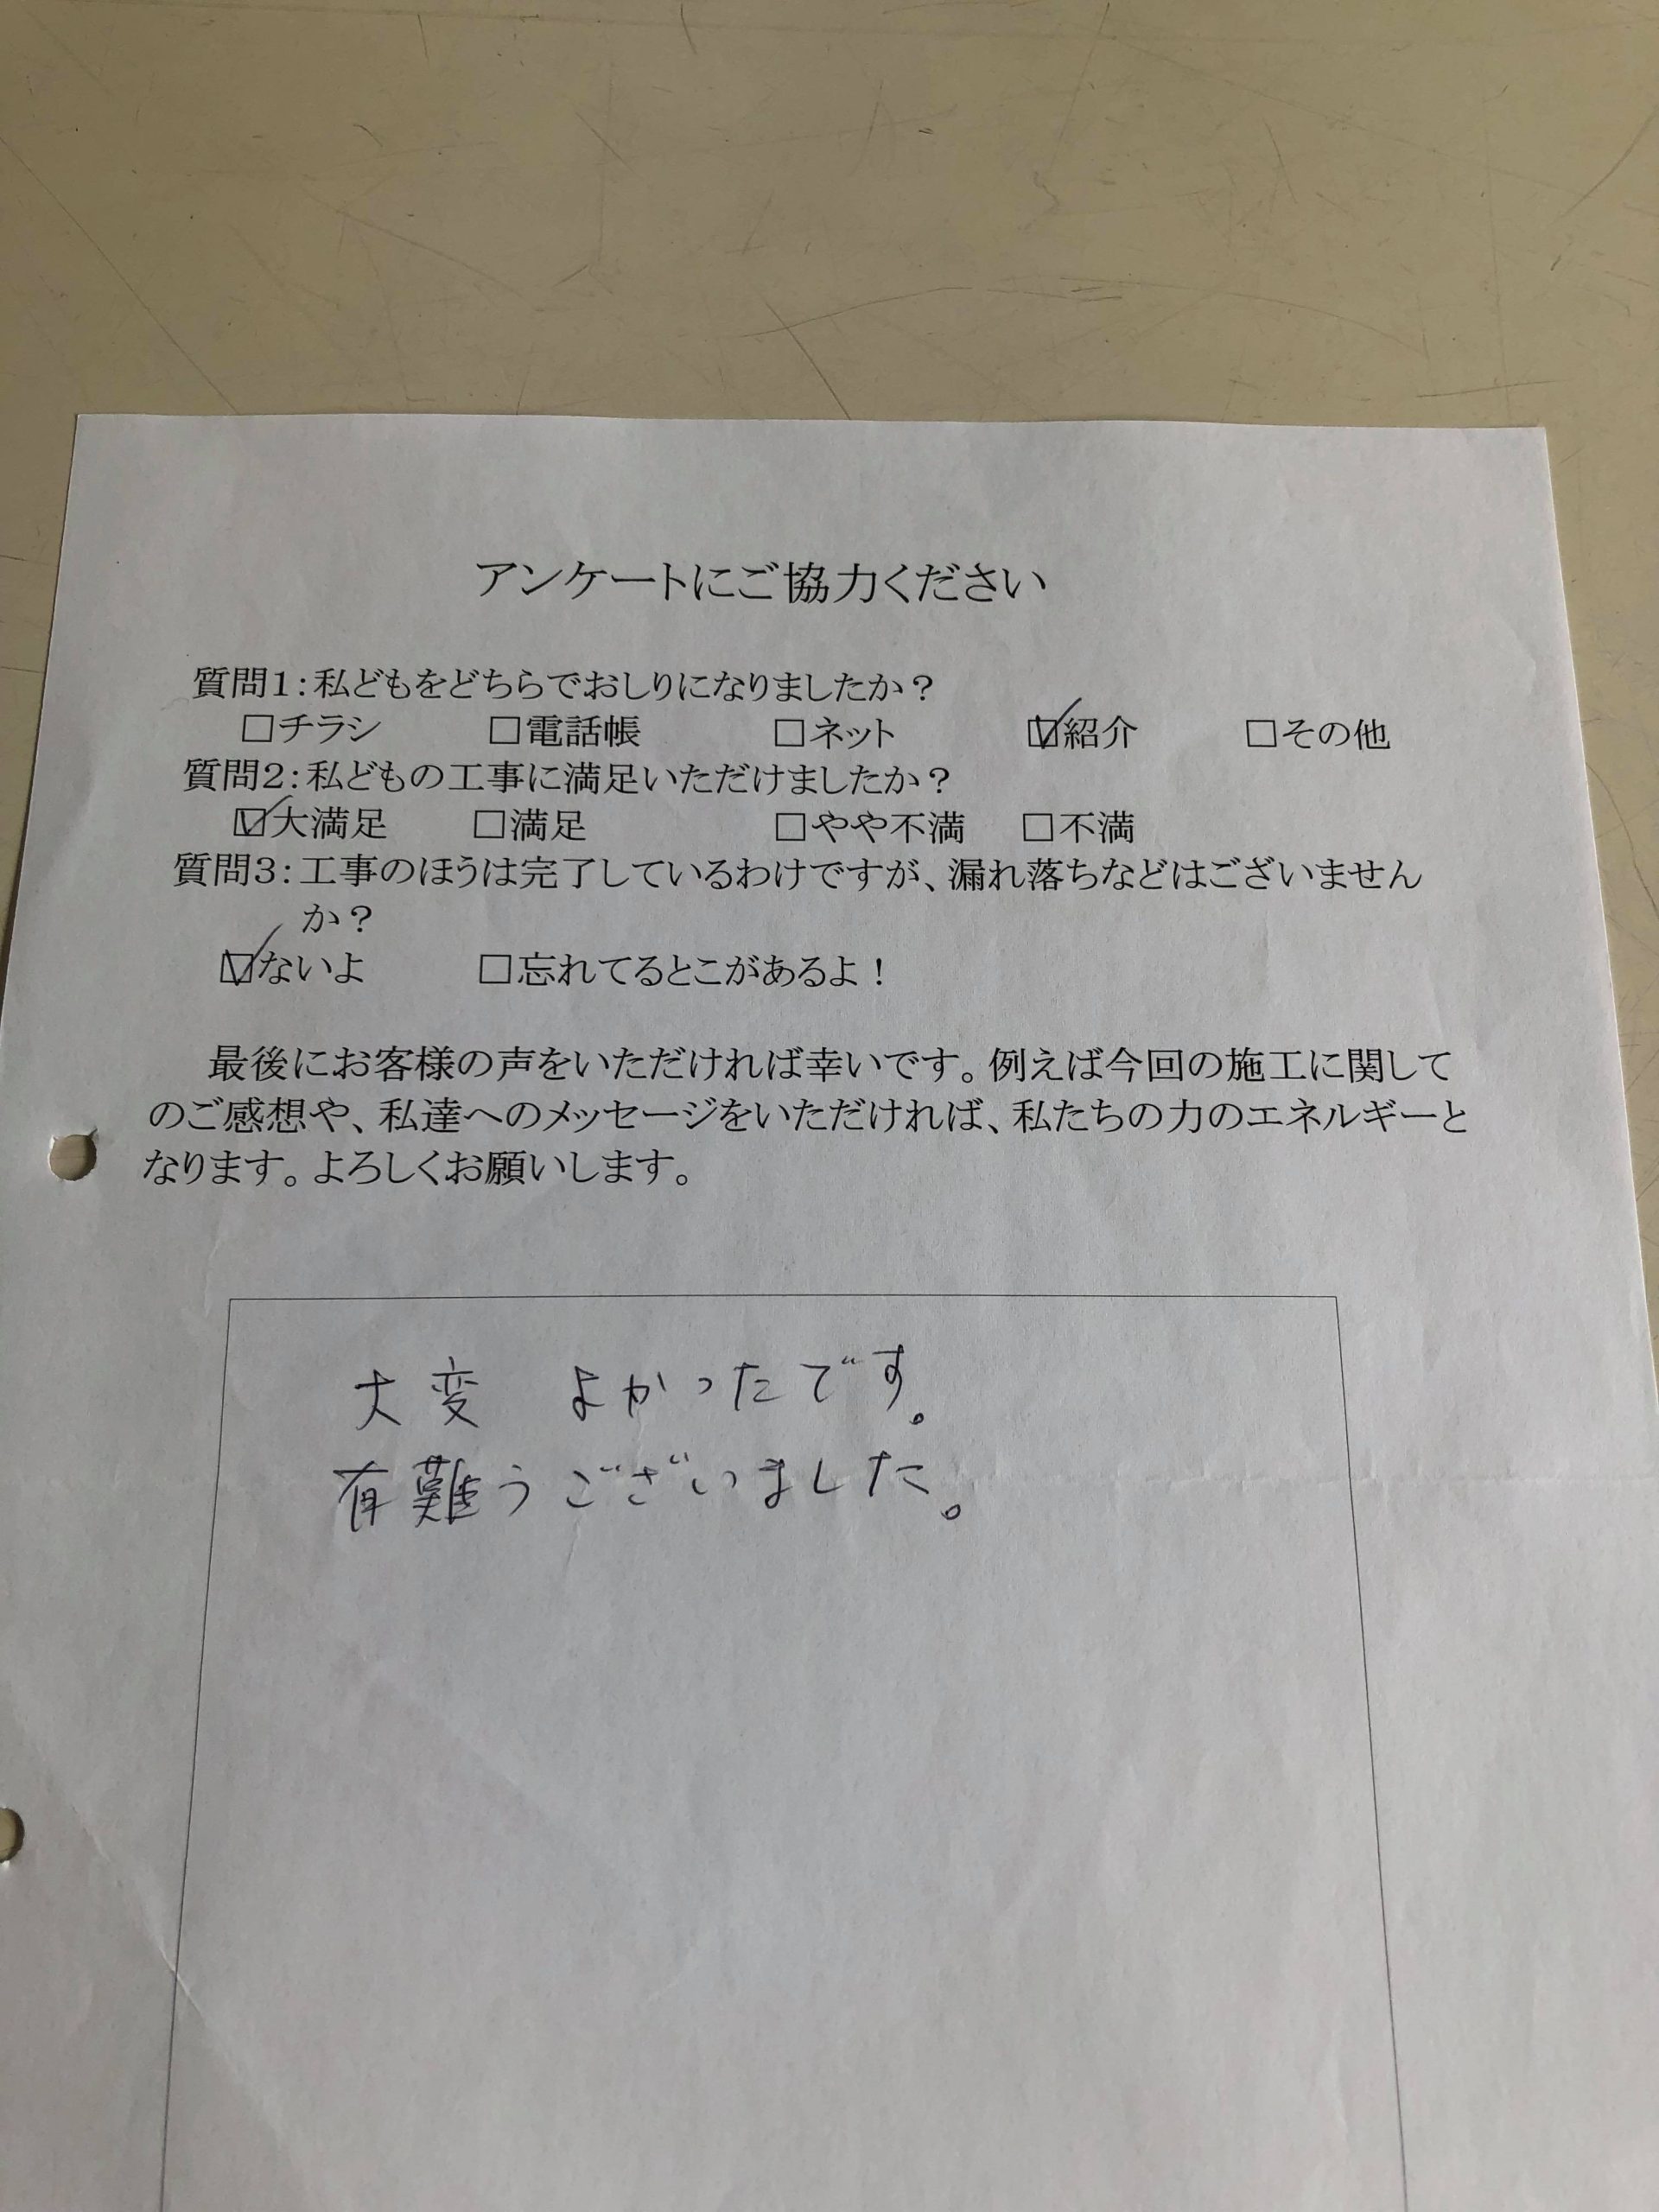 アンケートにご協力ください
質問1:私どもをどちらでおしりになりましたか?
□チラシ □電話帳 □ネット ☑紹介 □その他
質問2:私どもの工事に満足いただけましたか?
☑大満足 □満足 □やや不満 □不満
質問3:工事のほうは完了しているわけですが、漏れ落ちなどはございません
か?
☑ないよ □忘れてるとこがあるよ!
最後にお客様の声をいただければ幸いです。例えば今回の施工に関して
のご感想や、私達へのメッセージをいただければ、私たちの力のエネルギーと
なります。よろしくお願いします。
大変 よかったです。
有難うございました。